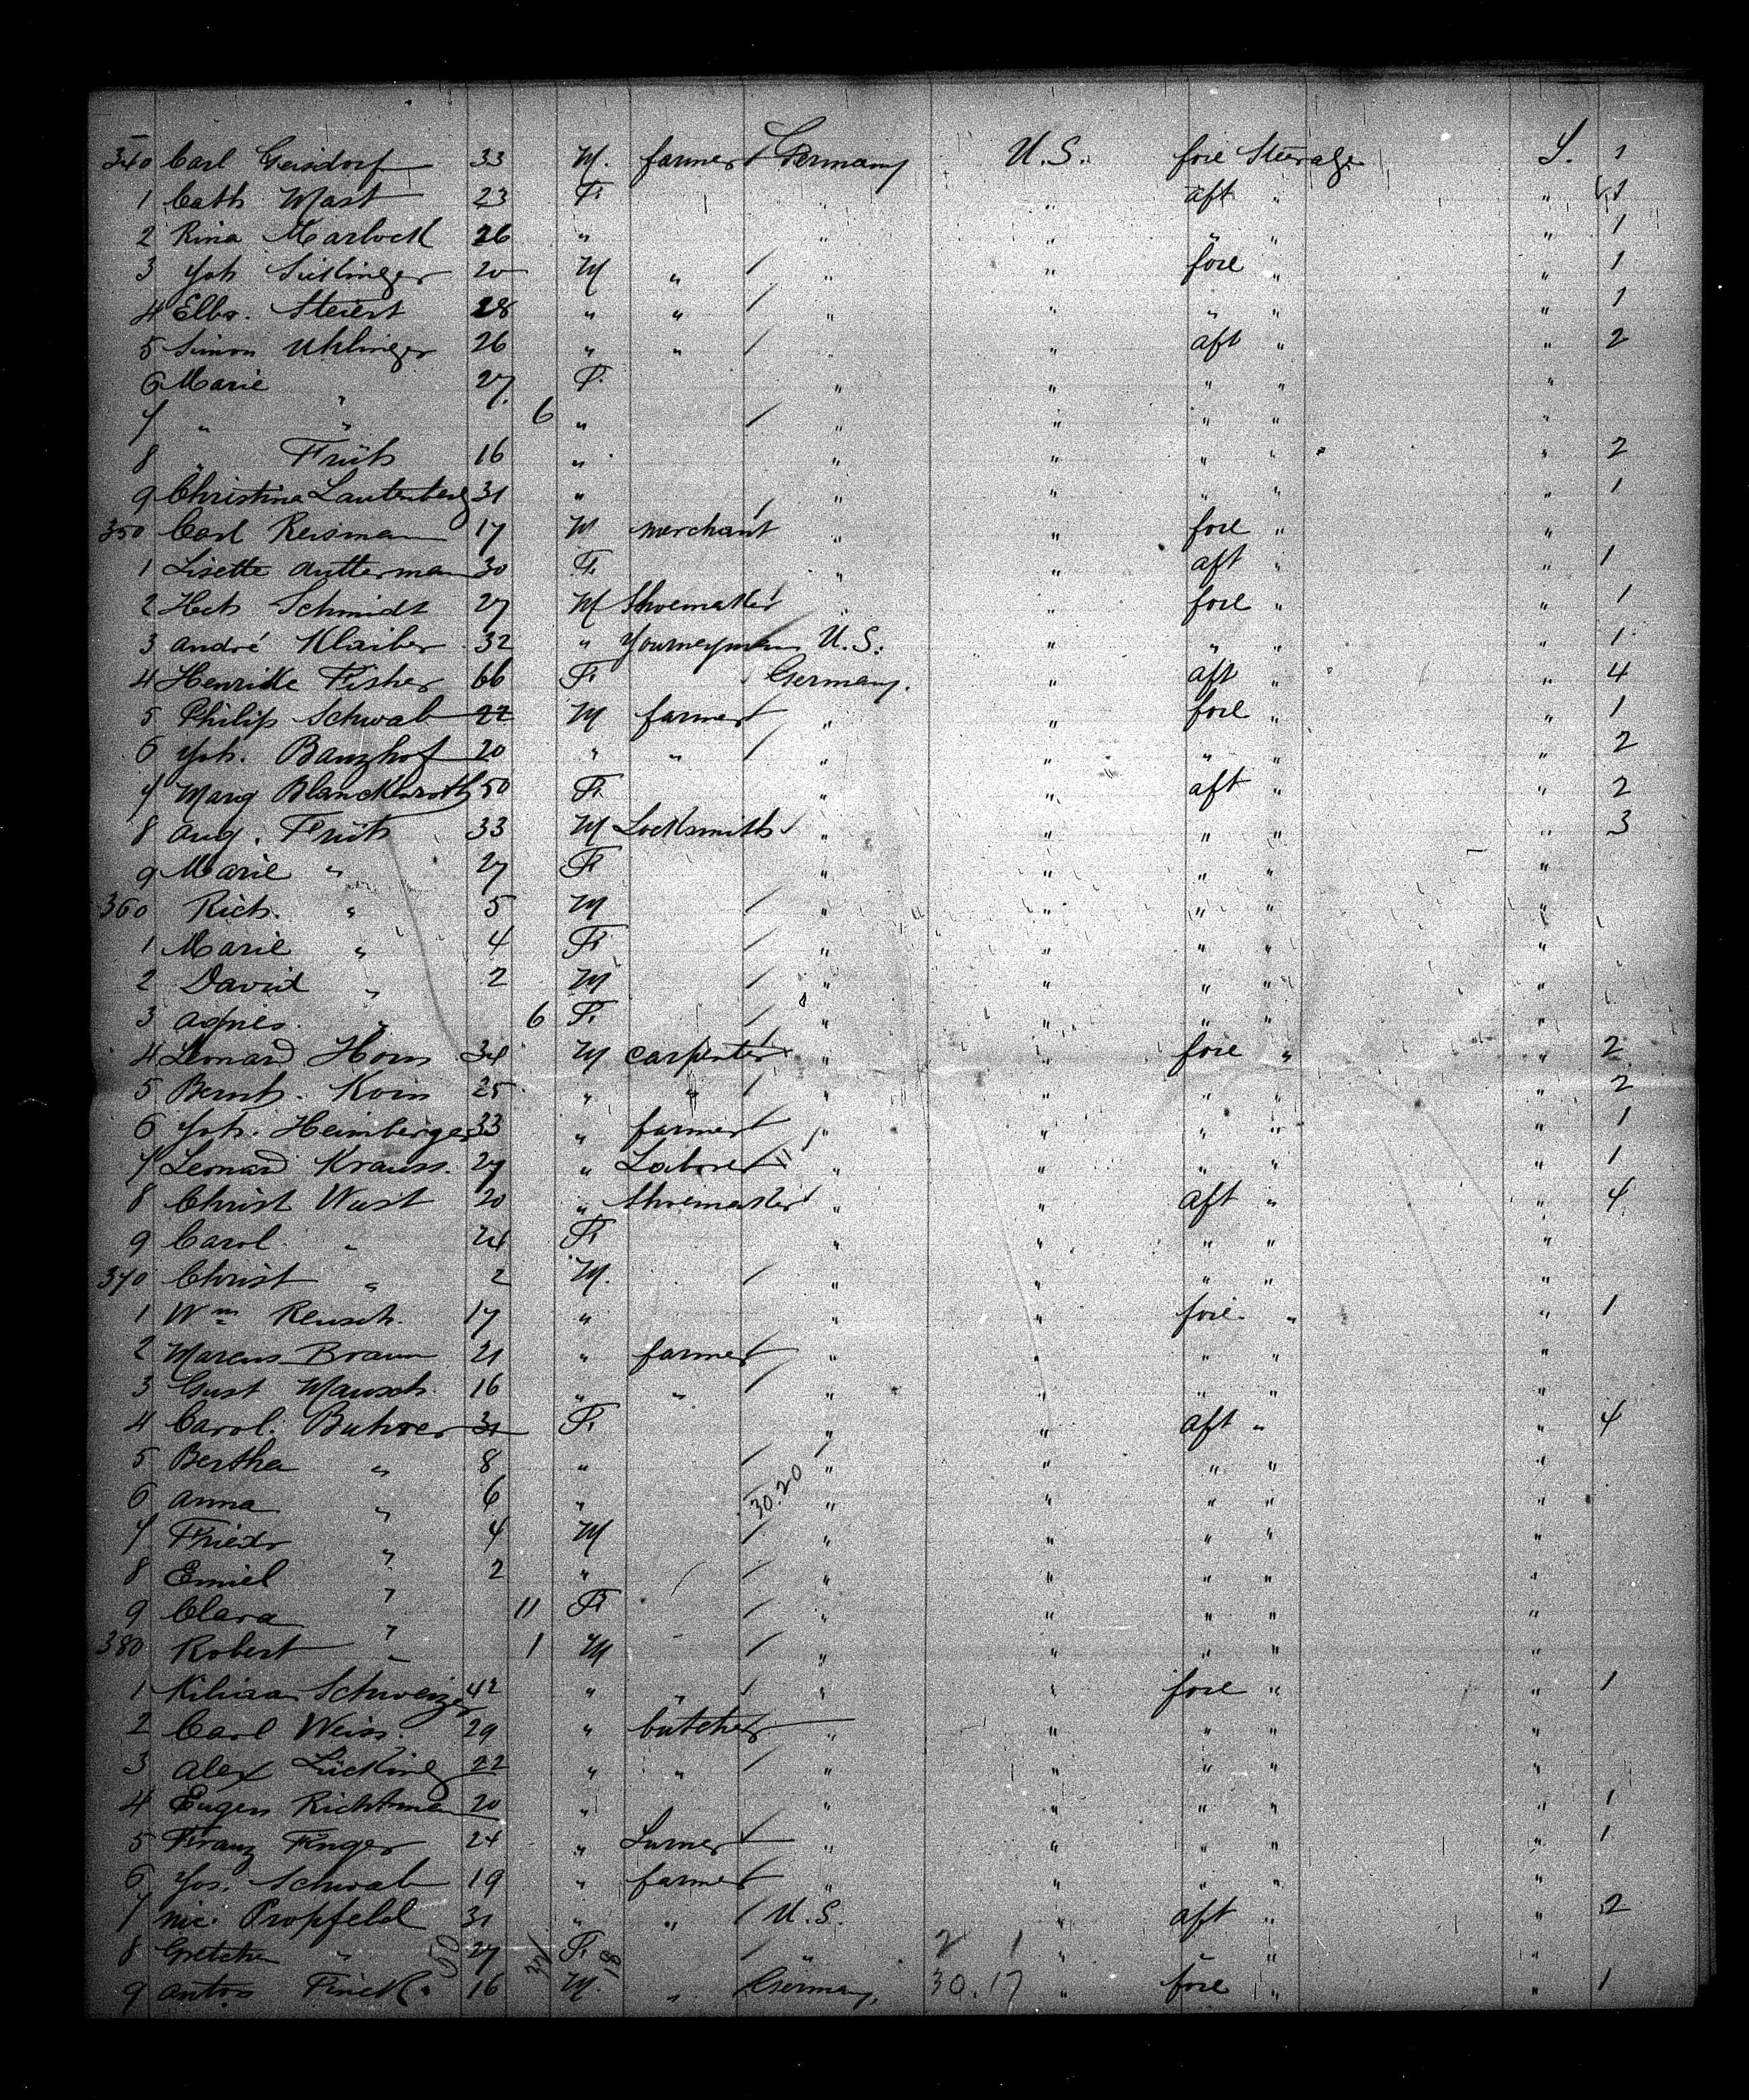 340 Carl Geisdorf 33 M. farmer Germany U.S. fore Steerage S. 1
1 Cath Mast 23 F. " " aft " " 1
2 Rina Marlock 26 " " " " " " 1
3 Joh 20 M " " " fore " " 1
4 Steiert 28 " " " " " " " 1
5 Simon Uhlinger 26 " " " " aft " " 2
6 Marie " 27. F. " " " " "
7 " " 6 " " " " " "
8 " Früh 16 " " " " " " 2
9 Christina Lautenberg 31 " " " " " " 1
350 Carl Reisman 17 M merchant " " fore " "
1 Lisette Autterman 30 F. " " aft " " 1
2 Hch Schmidt 27 M Shoemaker " " fore " " 1
3 André Klaiber 32 " Yourneyman U.S. " " " " 1
4 Henrike Fisher 66 F. Germany. " aft " " 4
5 Philip Schwab 22 M farmer " " fore " " 1
6 Joh. Banzhof 20 " " " " " " " 2
7 Marg Blanckenroth 50 F. " " aft " " 2
8 Aug. Früh 33 M Locksmith " " " " " 3
9 Marie " 27 F. " " " " "
360 Rich. " 5 M " " " " "
1 Marie " 4 F. " " " " "
2 David " 2 M " " " " "
3 Agnes. " 6 F. " " " " "
4 Leonard Horn 34 M carpenter " " fore " " 2
5 Bernh. Korn 25 " " " " " " " 2
6 Joh. Heimberger 33 " farmer " " " " " 1
7 Leonard Krauss. 27 " Laborer " " " " " 1
8 Christ Wust 20 " Shoemaker " " aft " " 4
9 Carol. " 24 F. " " " " "
370 Christ " 2 M. " " " " "
1 Wm Reusch. 17 " " " fore " " 1
2 Marcus Braun 21 " farmer " " " " "
3 Gust Mausch. 16 " " " " " " "
4 Carol. Buhrer 31 F. " " aft " " 4
5 Bertha " 8 " " " " " "
6 Anna " 6 " 30.20 " " " " "
7 Friedr " 4 M " " " " "
8 Emiel " 2 " " " " " "
9 Clara " 11 F. " " " " "
380 Robert " 1 M " " " " "
1 Kilian Schweizer 42 " " " " fore " " 1
2 Carl Weiss. 29 " butcher " " " " "
3 Alex Lücking 22 " " " " " " "
4 Eugen Richtman 20 " " " " " " 1
5 Franz Finger 24 " Turner " " " " " 1
6 Jos. Schwab 19 " farmer " " " " "
7 Nic. Propfeld 31 " " U.S. " aft " " 2
8 Gretchen " 27 F. " 2 1 " " " "
9 Anton Finck. 16 M. " Germany. 30.17 " fore " " 1